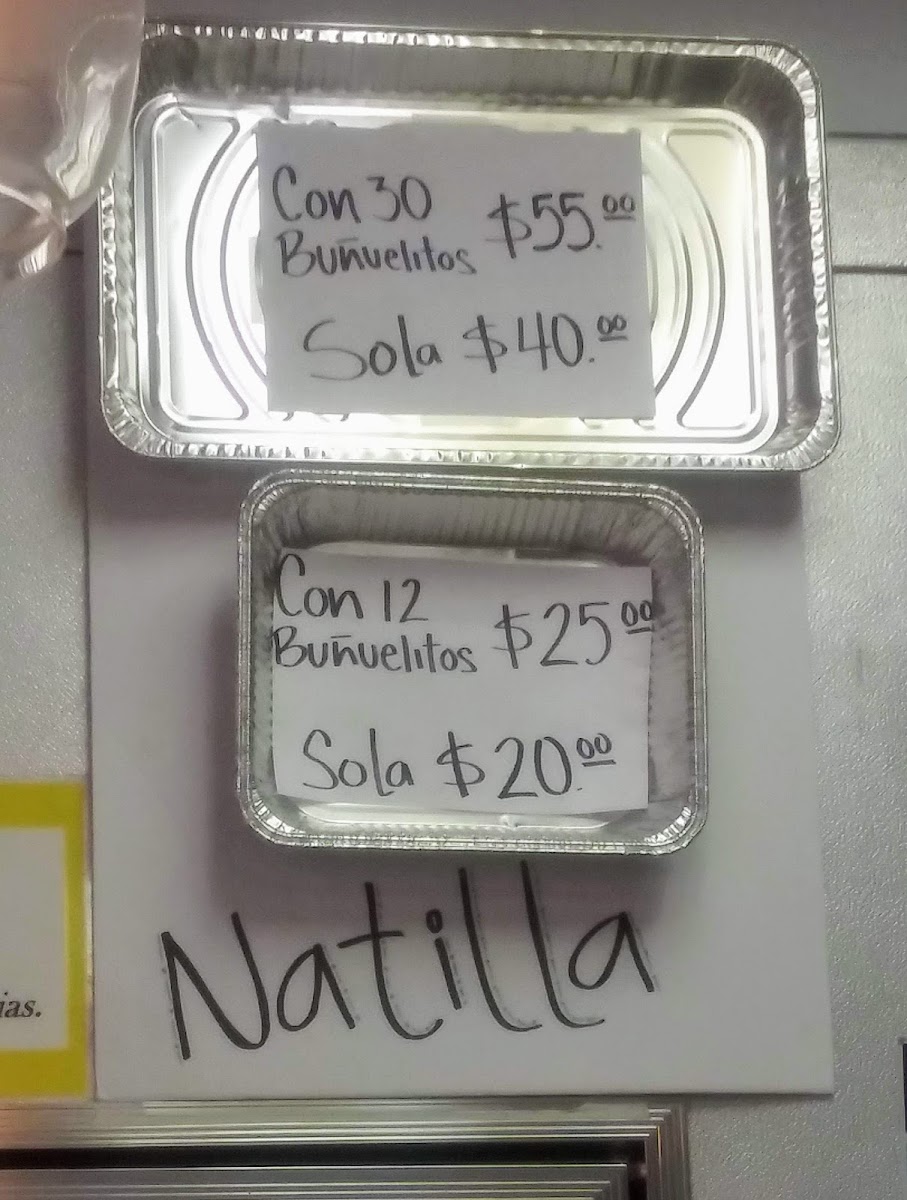 Con 30
Buñuelitos $55.00
Sola $40.00
Con 12
Buñuelitos $25.00
Sola $20.00
Natilla
ias.